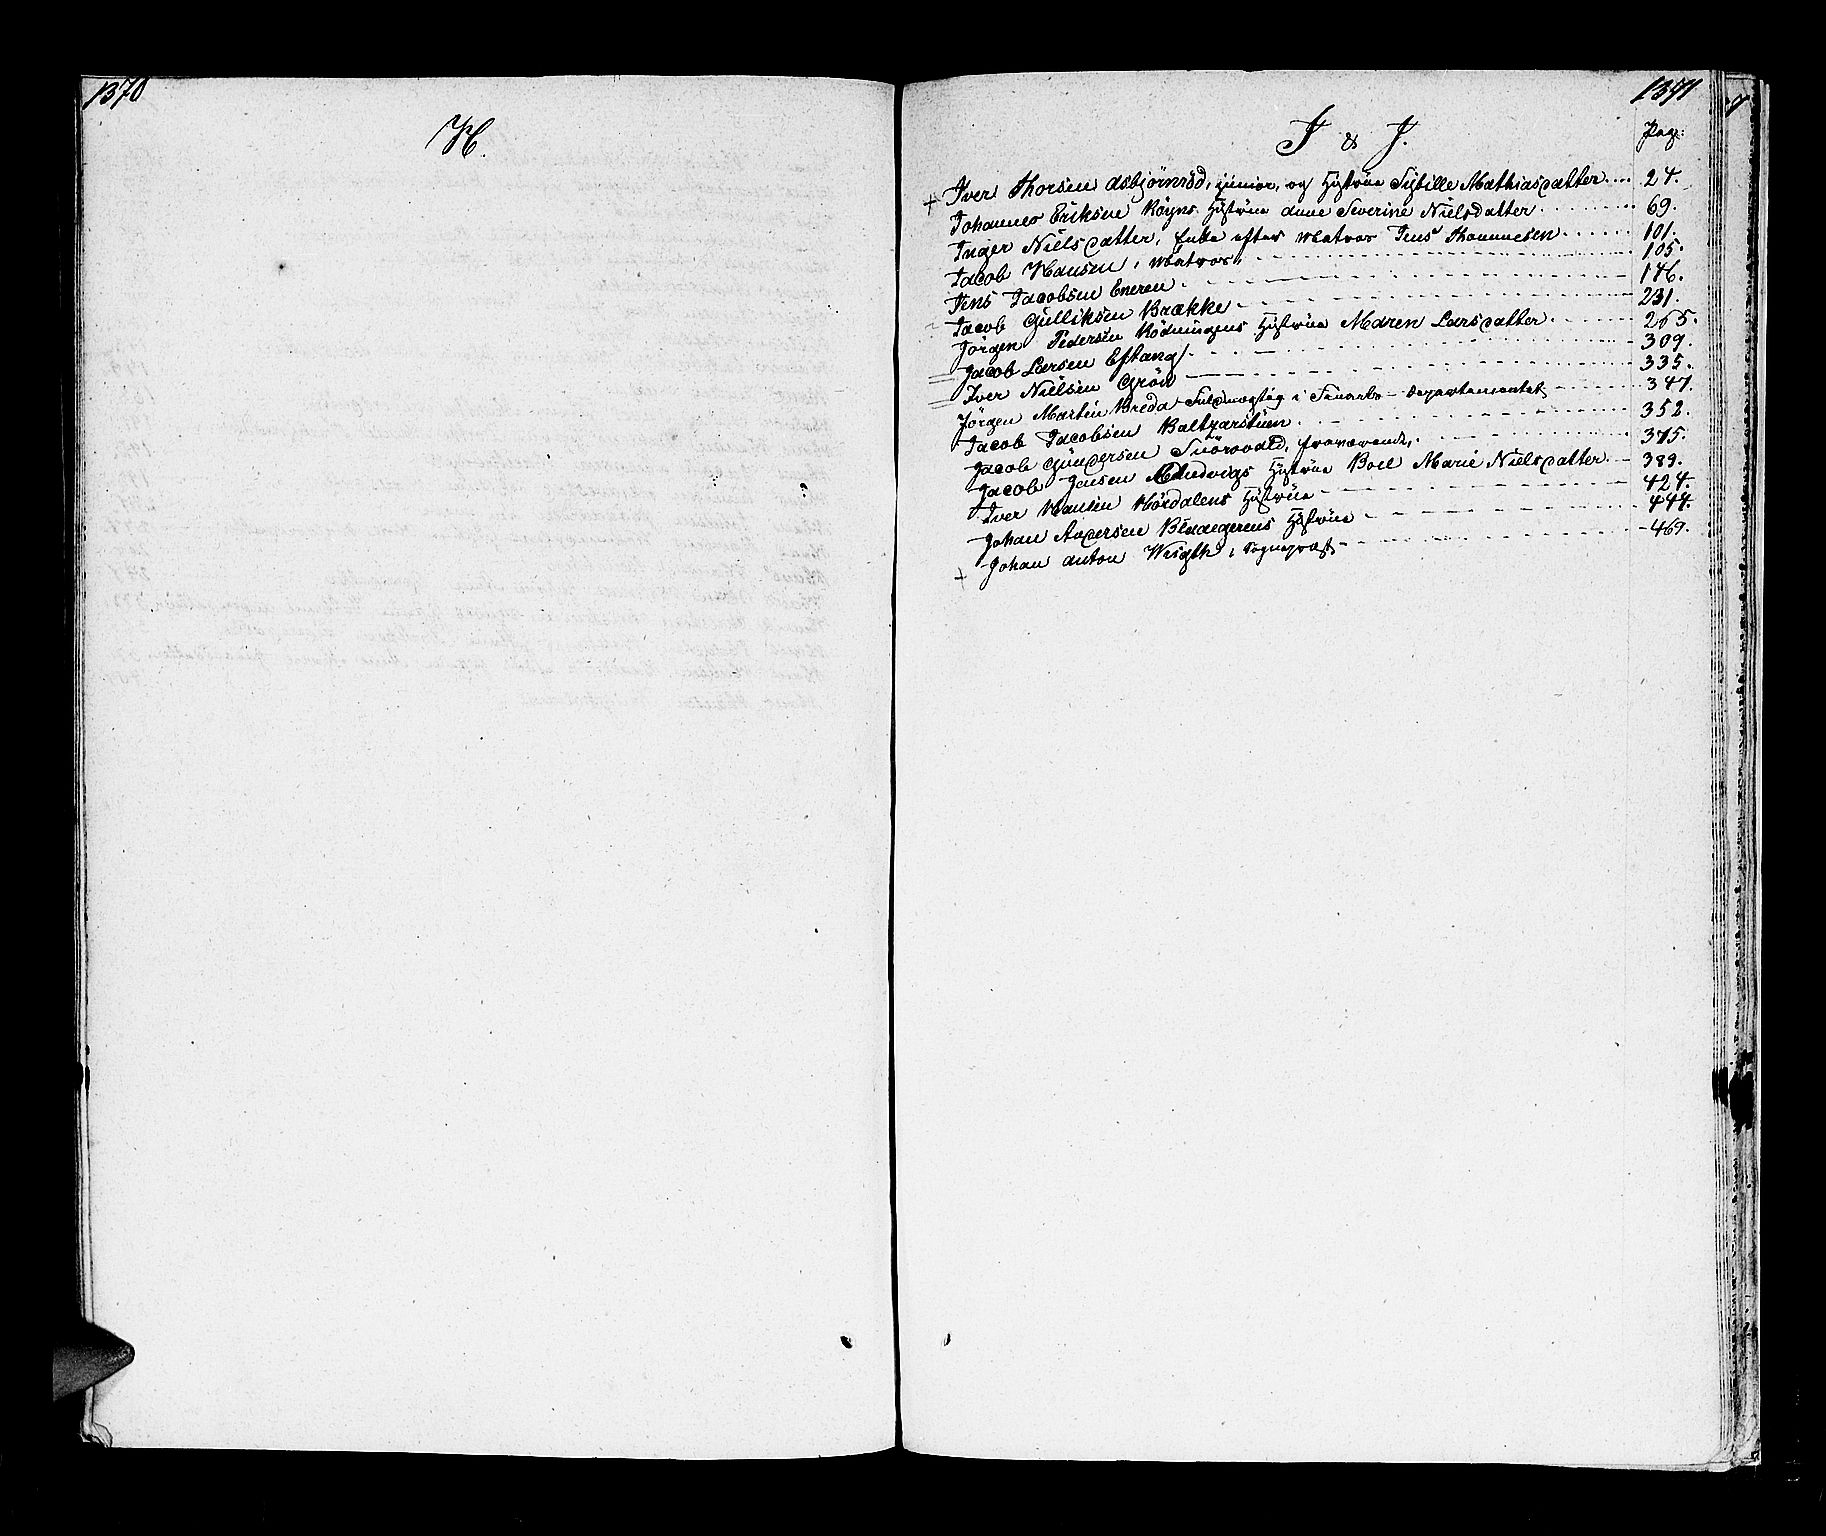 1370
H.
1371
I & J.
Pag:
Iver Thorsen Asbjørnrød, junior, og Hustrue Sybille Mathiasdatter.... 24.
Johannes Eriksen Røyns Hustrue Anne Severine Nielsdatter 69.
Inger Nielsdatter, Enke efter Matros Jens Thommesen 101.
Jacob Hansen, Matros, 105.
Jens Jacobsen Eneren 146.
Jacob Gulliksen Brække 231.
Jörgen Pedersen Rödningens Hustrue Maren Larsdatter 265.
Jacob Larsen Eftang 309.
Iver Nielsen Grön 335.
Jörgen Martin Breda Fuldmægtig i Finants-Departementet 347.
Jacob Jacobsen Baltzarstuen 352.
Jacob Gundersen fraværende, 375.
Jacob Jensen Hustrue Boel Marie Nielsdatter 389.
Iver Hansen Hördalens Hustrue 424.
Johan Andersen Hustrue 444.
Johan Anton Wrigth, Sogneprest 469.